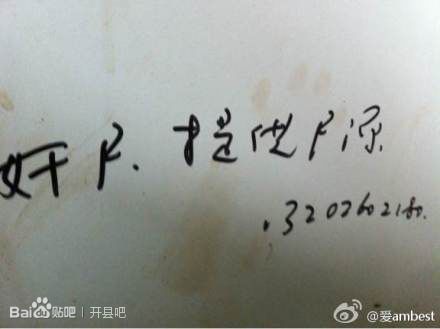 奸尸.提供尸源
Bai du 贴吧 | 开县吧
@爱ambest